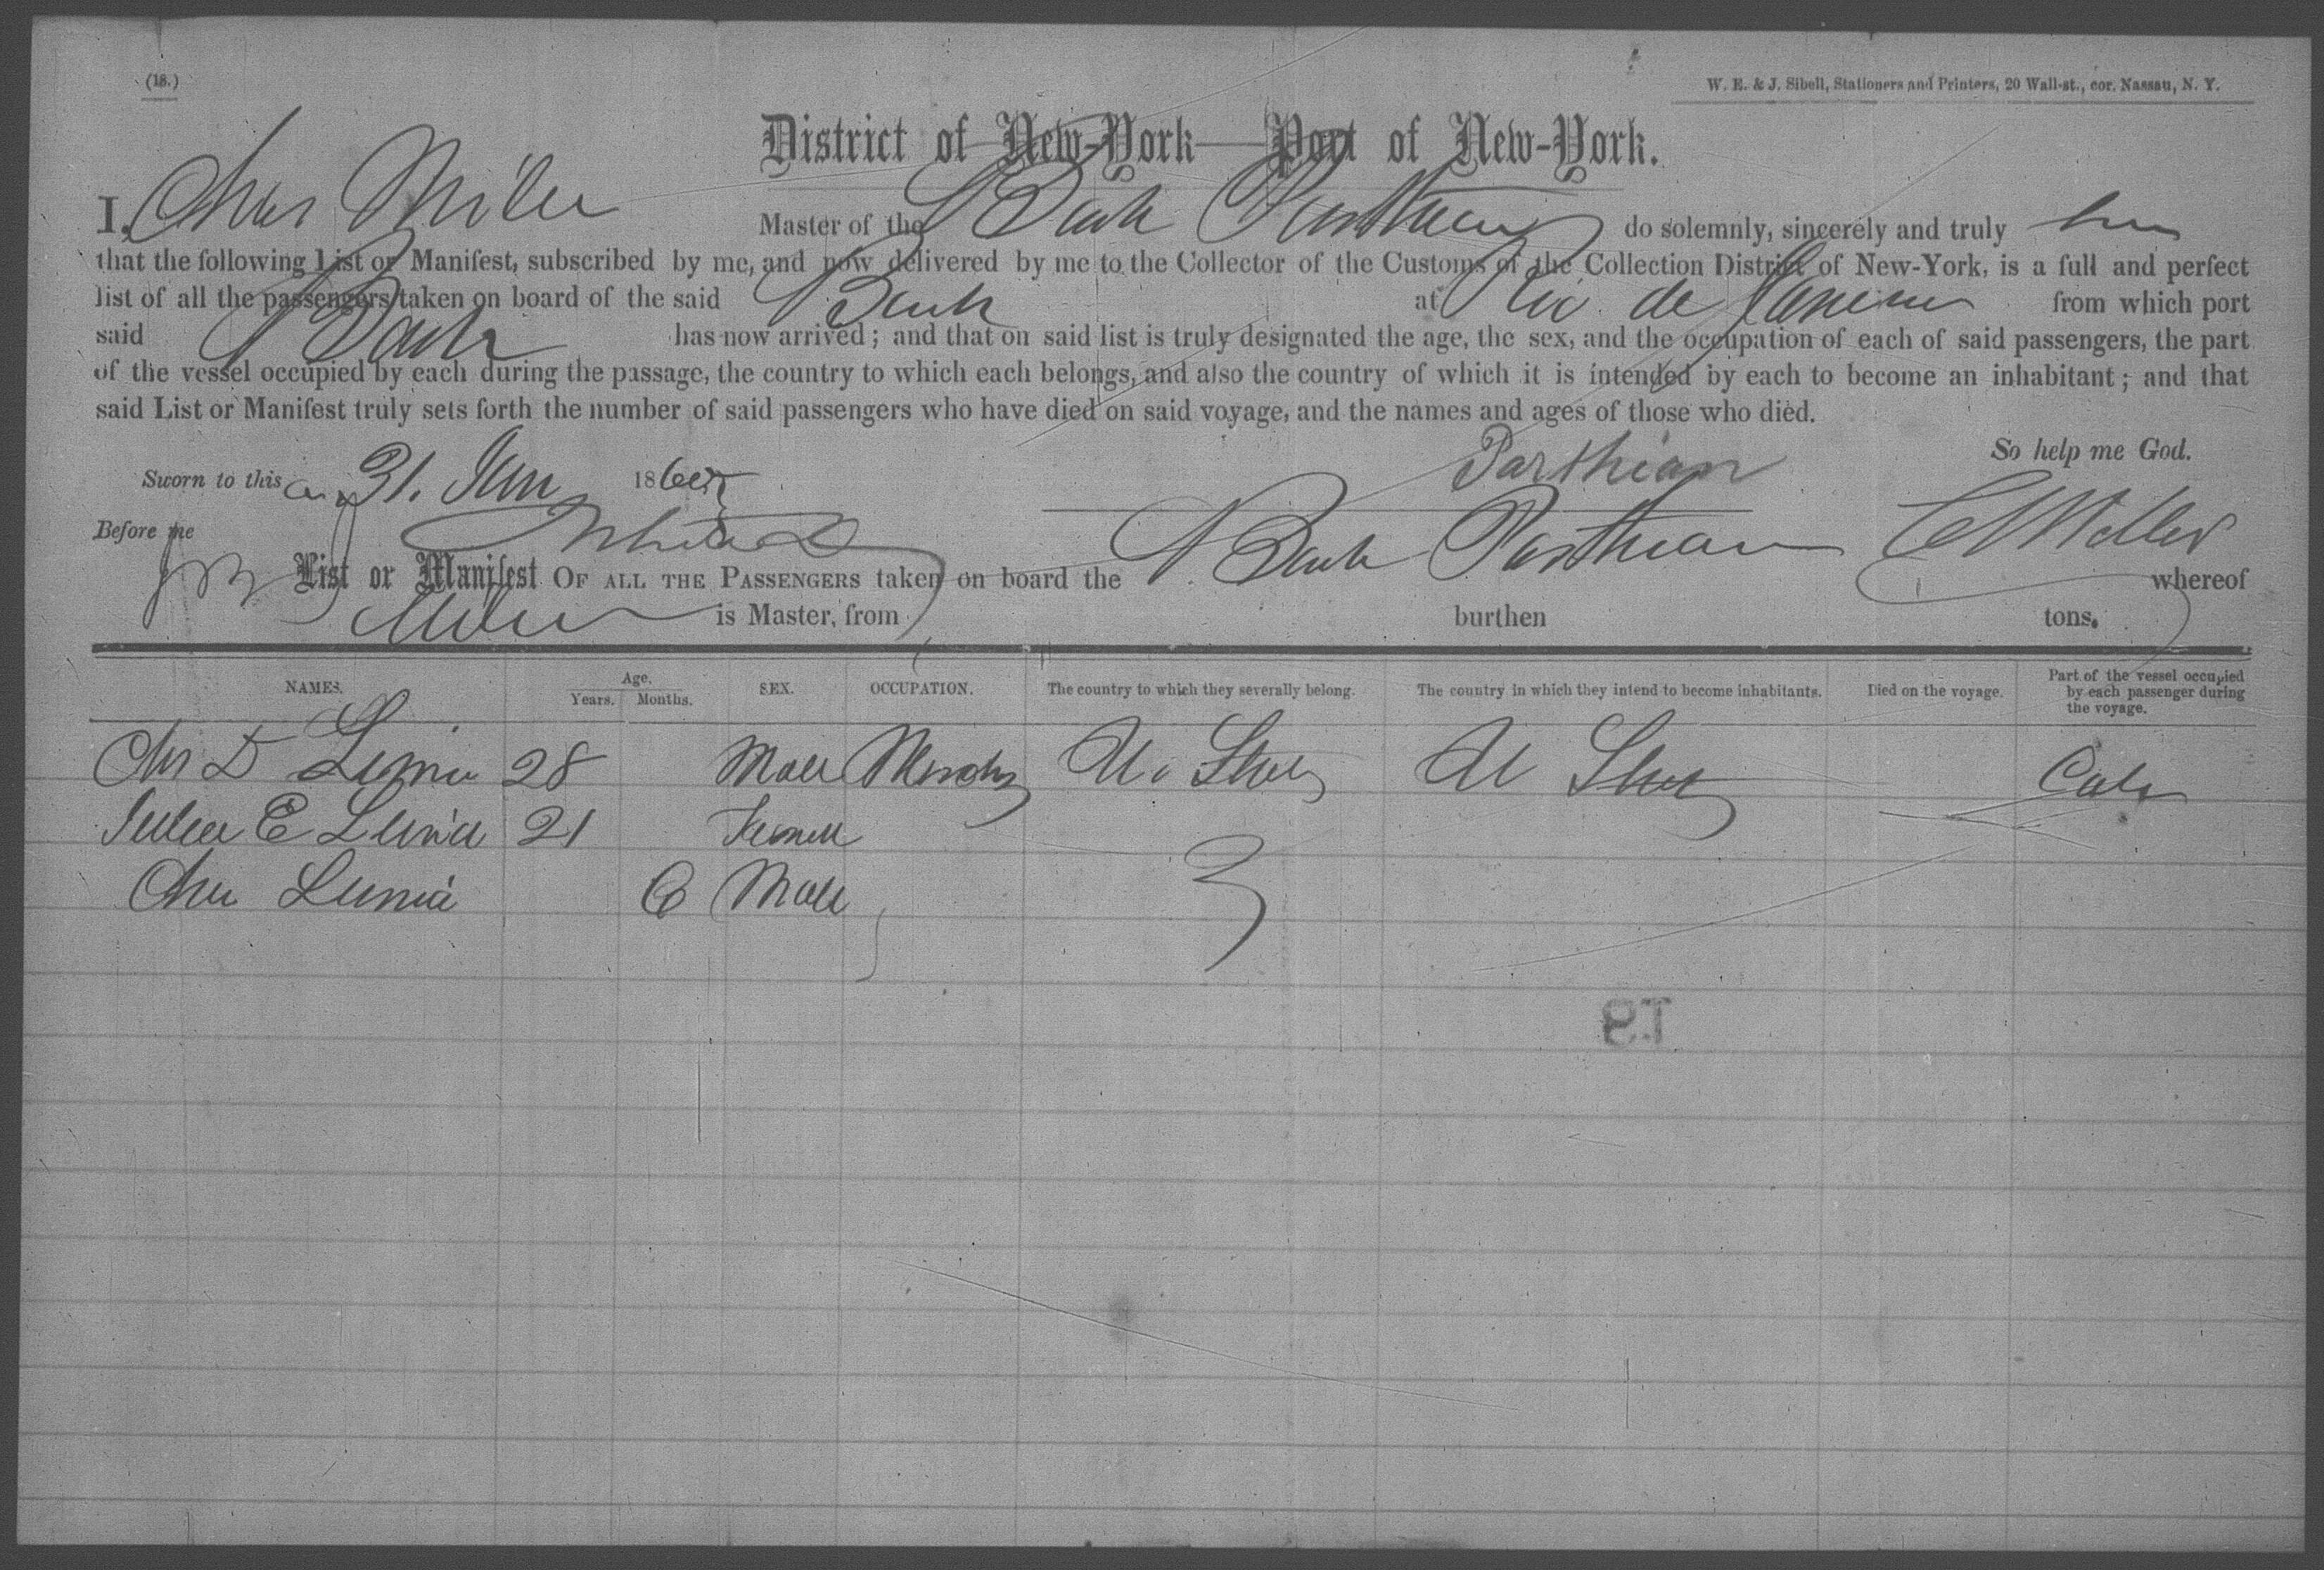 (18.)
W. E. & J. Sibell, Stationers and Printers, 20 Wall-st., cor. Nassau, N. Y.
District of New-York—Port of New-York.
I, Chas Miller Master of the Bark Parthian do solemnly, sincerely and truly
that the following List or Manifest, subscribed by me, and now delivered by me to the Collector of the Customs of the Collection District of New-York, is a full and perfect
list of all the passengers taken on board of the said Bark at Rio de Janeiro from which port
said Bark has now arrived; and that on said list is truly designated the age, the sex, and the occupation of each of said passengers, the part
of the vessel occupied by each during the passage, the country to which each belongs, and also the country of which it is intended by each to become an inhabitant; and that
said List or Manifest truly sets forth the number of said passengers who have died on said voyage, and the names and ages of those who died.
So help me God.
Parthian
Sworn to this 31. 186
Before me
C Miller
List or Manifest OF ALL THE PASSENGERS taken on board the Bark Parthian whereof
Miller is Master, from burthen tons.
NAMES. Age. Years. Months. SEX. OCCUPATION. The country to which they severally belong. The country in which they intend to become inhabitants. Died on the voyage. Part of the vessel occupied by each passenger during the voyage.
Chs D 28 Male U. States U States
Julia E 21 Female
6 Male
19